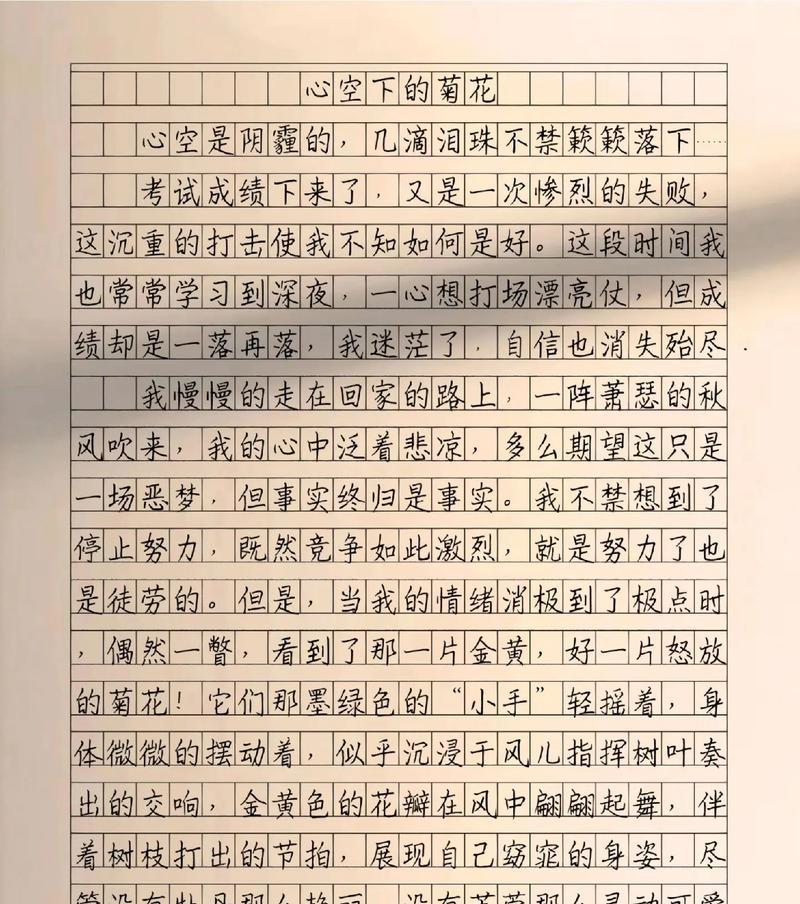 心空下的菊花
心空是阴霾的，几滴泪珠不禁簌簌落下……
考试成绩下来了，又是一次惨烈的失败，
这沉重的打击使我不知如何是好。这段时间我
也常常学习到深夜，一心想打场漂亮仗，但成
绩却是一落再落，我迷茫了，自信也消失殆尽.
我慢慢的走在回家的路上，一阵萧瑟的秋
风吹来，我的心中泛着悲凉，多么期望这只是
一场恶梦，但事实终归是事实。我不禁想到了
停止努力，既然竞争如此激烈，就是努力了也
是徒劳的。但是，当我的情绪消极到了极点时
，偶然一瞥，看到了那一片金黄，好一片怒放
的菊花！它们那墨绿色的“小手”轻摇着，身
体微微的摆动着，似乎沉浸于风儿指挥树叶奏
出的交响，金黄色的花瓣在风中翩翩起舞，伴
着树枝打出的节拍，展现自己窈窕的身姿，尽
管没有牡丹那么艳丽，没有芙蓉那么灵动可爱